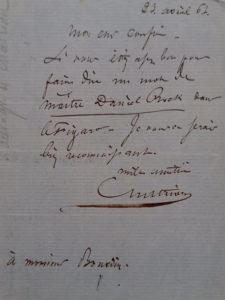 22 août 6
Mon cher confrère
Si vous êtes assez bon pour
faire dire un mot de
Maître Daniel Rock dans
le Figaro – Je vous en serais
bien reconnaissant.
mille amitiés
à monsieur